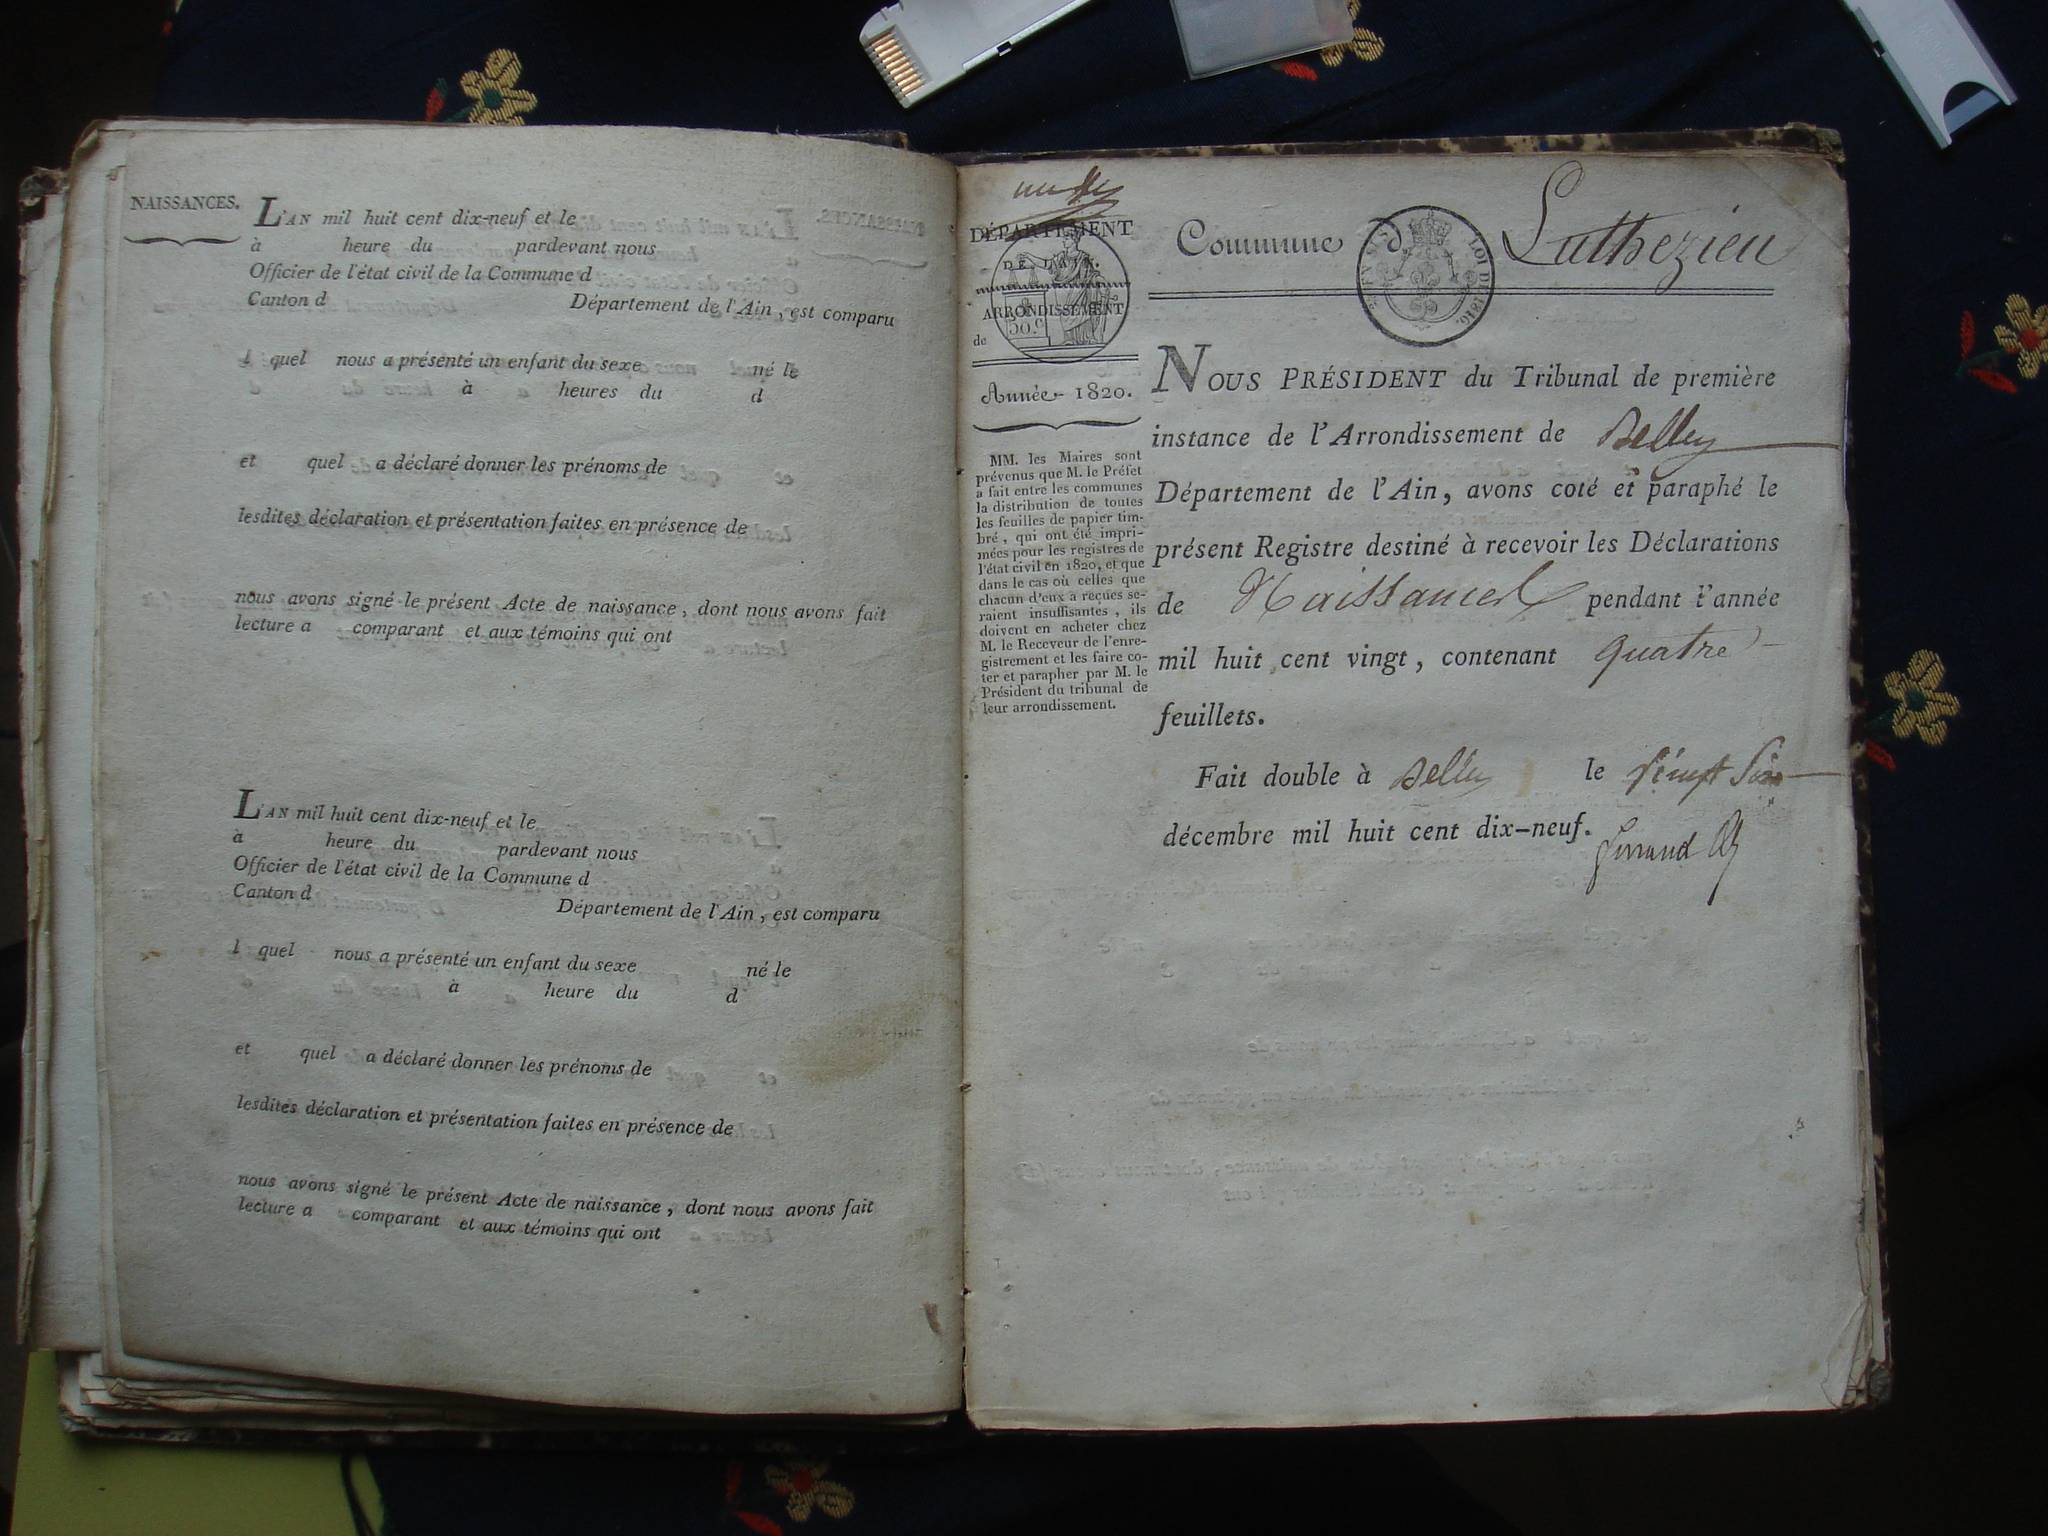 NAISSANCES.
L'AN mil huit cent dix-neuf et le
à heure du pardevant nous
Officier de l'état civil de la Commune d
Canton d Département de l'Ain, est comparu
l quel nous a présenté un enfant du sexe né le
à heures du d
et quel a déclaré donner les prénoms de
lesdites déclaration et présentation faites en présence de
nous avons signé le présent Acte de naissance, dont nous avons fait
lecture a comparant et aux témoins qui ont
L'AN mil huit cent dix-neuf et le
à heure du pardevant nous
Officier de l'état civil de la Commune d
Canton d Département de l'Ain, est comparu
l quel nous a présenté un enfant du sexe né le
à heure du d
et quel a déclaré donner les prénoms de
lesdites déclaration et présentation faites en présence de
nous avons signé le présent Acte de naissance, dont nous avons fait
lecture a comparant et aux témoins qui ont
DÉPARTEMENT
DE L'AIN.
ARRONDISSEMENT
50.c
de
Année 1820.
MM. les Maires sont
prévenus que M. le Préfet
a fait entre les communes
la distribution de toutes
les feuilles de papier tim-
bré, qui ont été impri-
mées pour les registres de
l'état civil en 1820, et que
dans le cas où celles que
chacun d'eux a reçues se-
raient insuffisantes, ils
doivent en acheter chez
M. le Receveur de l'enre-
gistrement et les faire co-
ter et parapher par M. le
Président du tribunal de
leur arrondissement.
Commune d Luthezieu
LOI DE 1816.
NOUS PRÉSIDENT du Tribunal de première
instance de l'Arrondissement de Belley
Département de l'Ain, avons coté et paraphé le
présent Registre destiné à recevoir les Déclarations
de Naissances pendant l'année
mil huit cent vingt, contenant quatre
feuillets.
Fait double à Belley le vingt six
décembre mil huit cent dix-neuf.